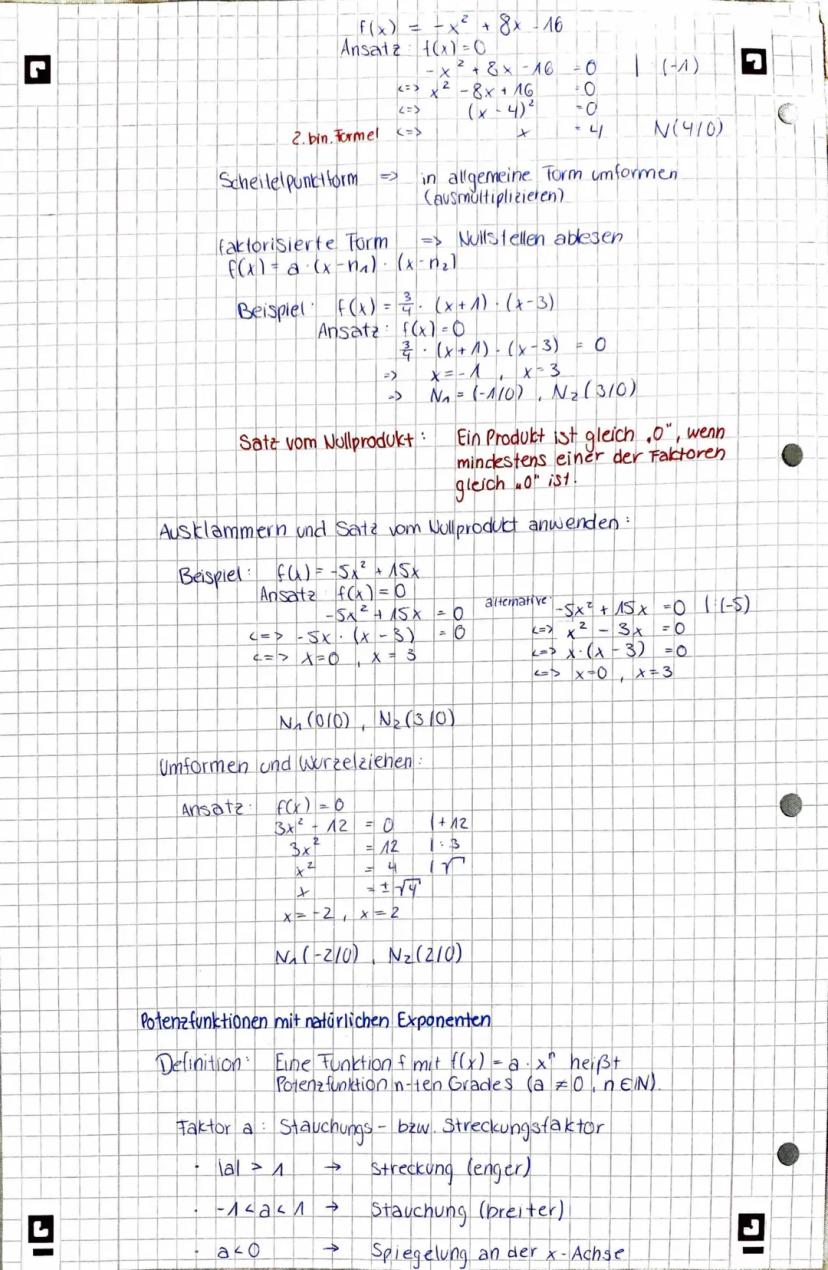 f(x) = -x² + 8x - 16
Ansatz: f(x) = 0
-x² + 8x - 16 = 0 | (-1)
<=> x² - 8x + 16 = 0
<=> (x - 4)² = 0
2. bin. Formel <=> x = 4 N(4/0)
Scheitelpunktform => in allgemeine Form umformen
(ausmultiplizieren)
faktorisierte Form => Nullstellen ablesen
f(x) = a · (x-n₁) · (x-n₂)
Beispiel: f(x) = 3/4 · (x+1) · (x-3)
Ansatz: f(x) = 0
3/4 · (x+1) · (x-3) = 0
=> x = -1 , x = 3
=> N₁ = (-1/0) , N₂(3/0)
Satz vom Nullprodukt: Ein Produkt ist gleich „0", wenn
mindestens einer der Faktoren
gleich „0" ist.
Ausklammern und Satz vom Nullprodukt anwenden:
Beispiel: f(x) = -5x² + 15x
Ansatz f(x) = 0
-5x² + 15x = 0
<=> -5x · (x - 3) = 0
<=> x=0 , x = 3
alternative: -5x² + 15x = 0 |:(-5)
<=> x² - 3x = 0
<=> x·(x - 3) = 0
<=> x=0 , x=3
N₁(0/0) , N₂(3/0)
Umformen und Wurzelziehen:
Ansatz: f(x) = 0
3x² - 12 = 0 |+12
3x² = 12 |:3
x² = 4 |√
x = ±√4
x = -2 , x = 2
N₁(-2/0) , N₂(2/0)
Potenzfunktionen mit natürlichen Exponenten
Definition: Eine Funktion f mit f(x) = a · xⁿ heißt
Potenzfunktion n-ten Grades (a ≠ 0, n ∈ ℕ).
Faktor a: Stauchungs- bzw. Streckungsfaktor
· |a| > 1 → Streckung (enger)
· -1 < a < 1 → Stauchung (breiter)
· a < 0 → Spiegelung an der x-Achse